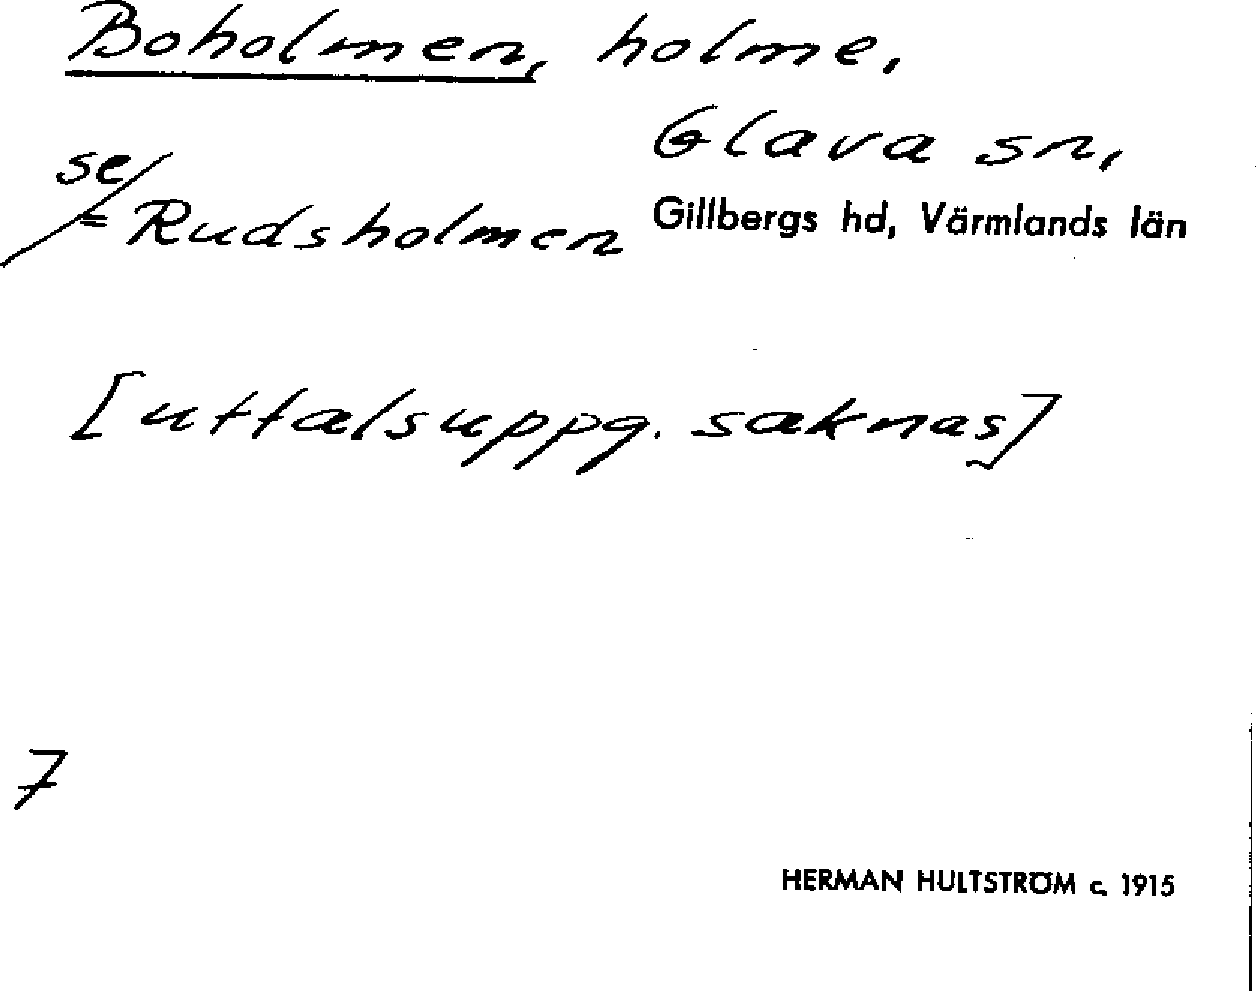 Boholmen, holme.
Glava sn,
se
= Rudsholmen
Gillbergs hd, Värmlands län
[uttalsuppg. saknas]
7
HERMAN HULTSTRÖM c. 1915